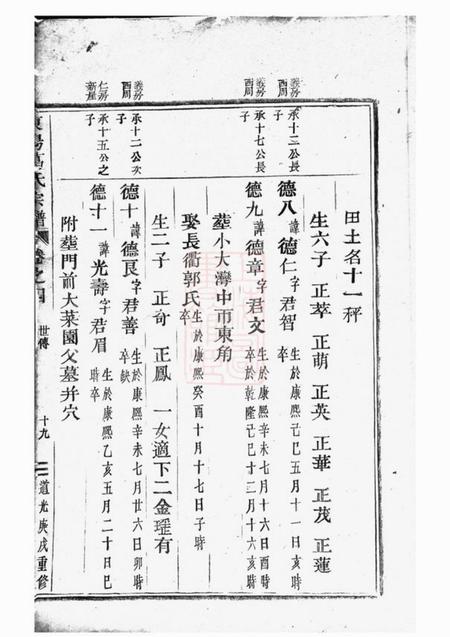 田土名十一秤
義房
西周
承十三公長
子
德八諱德仁字君智
生於康熙己巳五月十一日亥時
卒
生六子 正萃 正萌 正英 正華 正茂 正蓮
義房
西周
承十七公長
子
德九諱德章字君文
生於康熙辛未七月十六日酉時
卒於乾隆己巳十二月十六亥時
塟小大灣中市東角
娶長衢郭氏
生於康熙癸酉十月十七日子時
卒
生二子 正奇 正鳳 一女適下二金瑶有
義房
西周
承十二公次
子
德十諱德良字君善
生於康熙辛未七月廿六日卯時
卒缺
仁房
新屋
承十五公之
子
德十一諱光壽字君眉
生於康熙乙亥五月二十日巳
時卒
附塟門前大菜園父墓并穴
東陽葛氏宗譜 卷之四 世傳 十九 道光庚戌重修